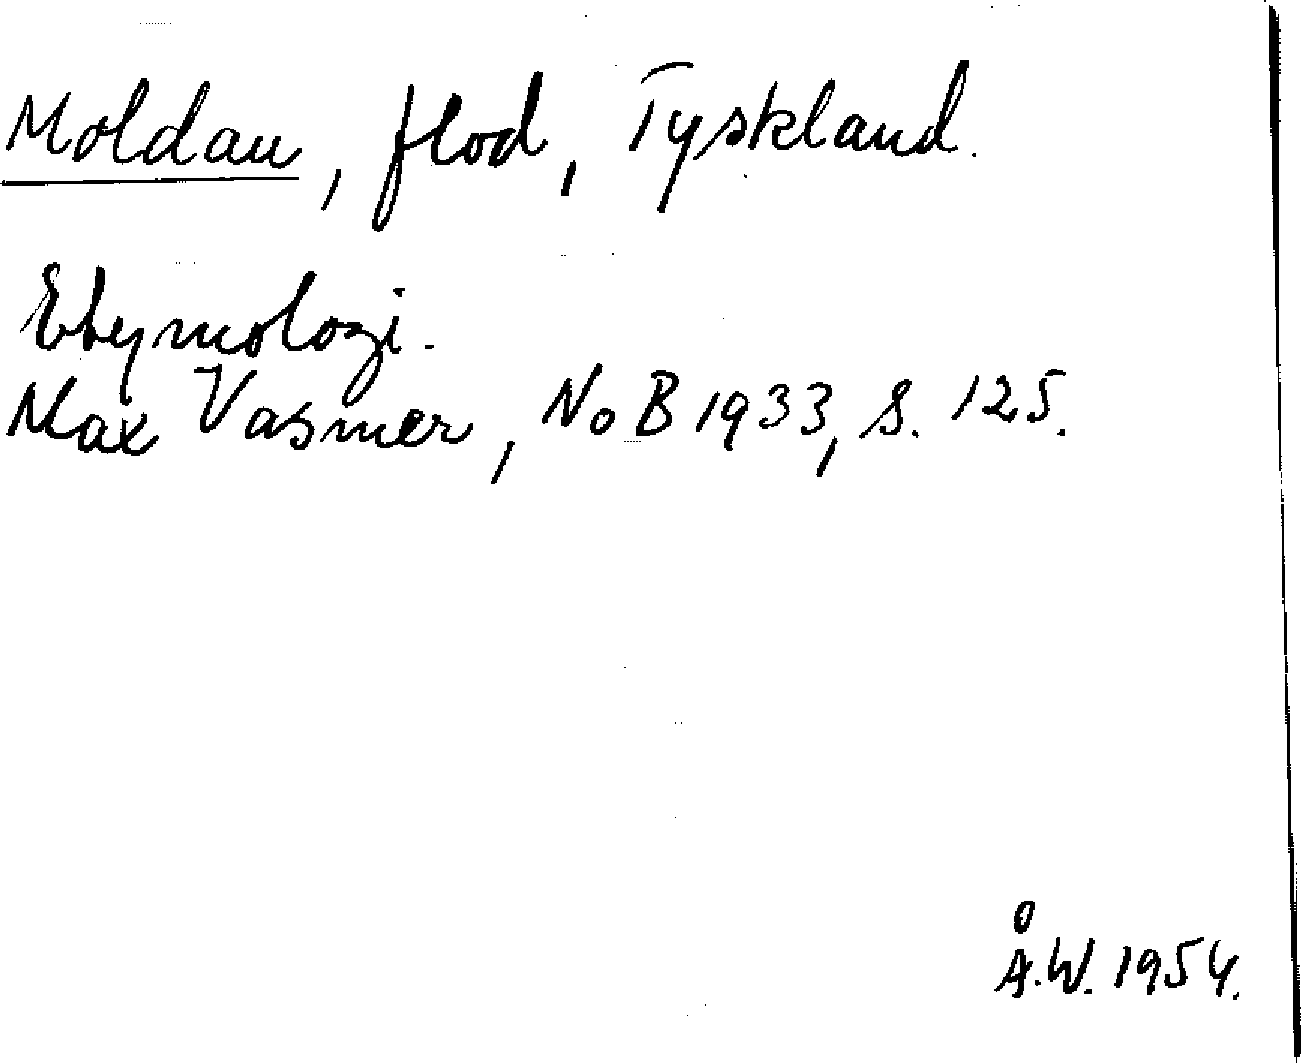 Moldau, flod, Tyskland.
Etymologi.
Max Vasmer, NoB 1933, s. 125.
Å.W. 1954.